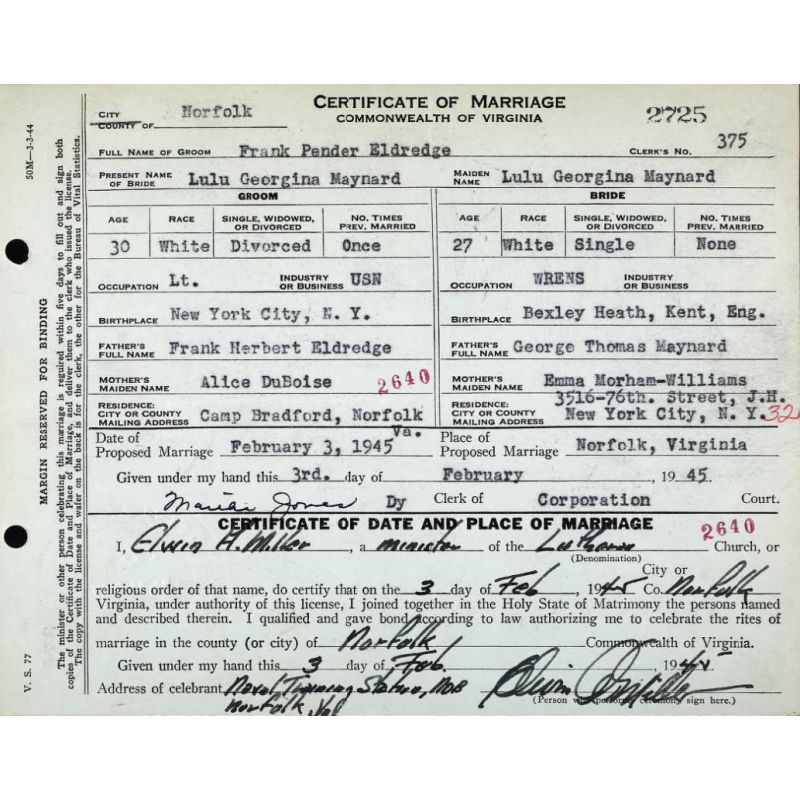 CERTIFICATE OF MARRIAGE
COMMONWEALTH OF VIRGINIA
CITY Norfolk 2725
COUNTY OF
FULL NAME OF GROOM Frank Pender Eldredge CLERK'S NO. 375
PRESENT NAME OF BRIDE Lulu Georgina Maynard MAIDEN NAME Lulu Georgina Maynard
GROOM BRIDE
AGE RACE SINGLE, WIDOWED, OR DIVORCED NO. TIMES PREV. MARRIED AGE RACE SINGLE, WIDOWED, OR DIVORCED NO. TIMES PREV. MARRIED
30 White Divorced Once 27 White Single None
OCCUPATION Lt. INDUSTRY OR BUSINESS USN OCCUPATION WRENS INDUSTRY OR BUSINESS
BIRTHPLACE New York City, N. Y. BIRTHPLACE Bexley Heath, Kent, Eng.
FATHER'S FULL NAME Frank Herbert Eldredge FATHER'S FULL NAME George Thomas Maynard
MOTHER'S MAIDEN NAME Alice DuBoise 2640 MOTHER'S MAIDEN NAME Emma Morham-Williams
RESIDENCE: CITY OR COUNTY MAILING ADDRESS Camp Bradford, Norfolk Va. RESIDENCE: CITY OR COUNTY MAILING ADDRESS 3516-76th. Street, J.H. New York City, N. Y. 32
Date of Proposed Marriage February 3, 1945 Place of Proposed Marriage Norfolk, Virginia
Given under my hand this 3rd. day of February, 1945.
Marian Jones Dy Clerk of Corporation Court.
CERTIFICATE OF DATE AND PLACE OF MARRIAGE 2640
I, Elwin A. Miller, a minister of the Lutheran Church, or
(Denomination)
City or
religious order of that name, do certify that on the 3 day of Feb, 1945 Co. Norfolk
Virginia, under authority of this license, I joined together in the Holy State of Matrimony the persons named
and described therein. I qualified and gave bond according to law authorizing me to celebrate the rites of
marriage in the county (or city) of Norfolk Commonwealth of Virginia.
Given under my hand this 3 day of Feb., 1945
Address of celebrant Naval Training Station, NOB Elwin A. Miller
Norfolk, Va. (Person who performs ceremony sign here.)
50M—3-3-44
V. S. 77
MARGIN RESERVED FOR BINDING
The minister or other person celebrating this marriage is required within five days to fill out and sign both
copies of the Certificate of Date and Place of Marriage, and deliver them to the clerk who issued the license.
The copy with the license and wafer on the back is for the clerk, the other for the Bureau of Vital Statistics.